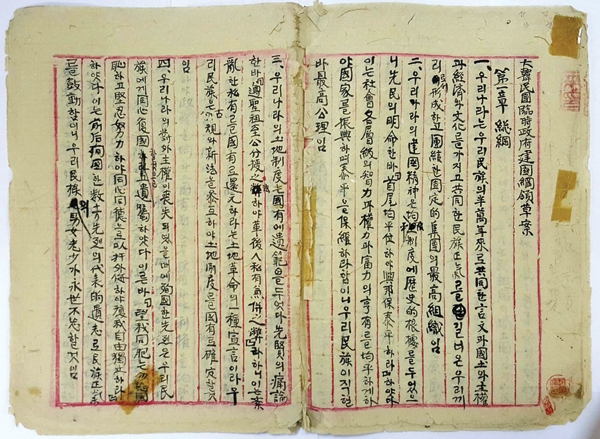 大韓民國臨時政府建國綱領草案
第一章 總綱
一、우리나라는우리民族의半萬年來로共同한言文과國土와主權
과經濟와文化를가지고共同한民族正氣를길너온우리끼
리形成하고團結한固定的集團의最高組織임
二、우리나라의建國精神은均制度에歷史的根據를두었으
니先民의明命한바「首尾均平位하야興邦保泰平하리라하야
이는社會各層級의智力과權力과富力의享有를均平하게하
야國家를振興하며泰平을保維하라함이니우리民族이직현
바最高公理임
三、우리나라의土地制度는國有에遺範을두엇다先賢의痛論
한바「遵聖祖至公分授之하야革後人私有兼併之弊」하라하니이는紊
亂한私有를國有로還元하라는土地革命의一種宣言이라우
리民族은古規와新法을參互하야土地制度를國有로確定할것
임
四、우리나라의主權이喪失되엿을때에殉國한先烈은우리民
族에게同心復國을遺囑하엿다이른바「望我同胞는勿忘國
恥하고堅忍努力하야同心同德으로以扞外侮하야復我自由獨立하라
하엿다이는前后殉國한數十萬先烈의代表的遺志로民族正氣
를鼓動함이니우리民族의男女老少가永世不忘할것임